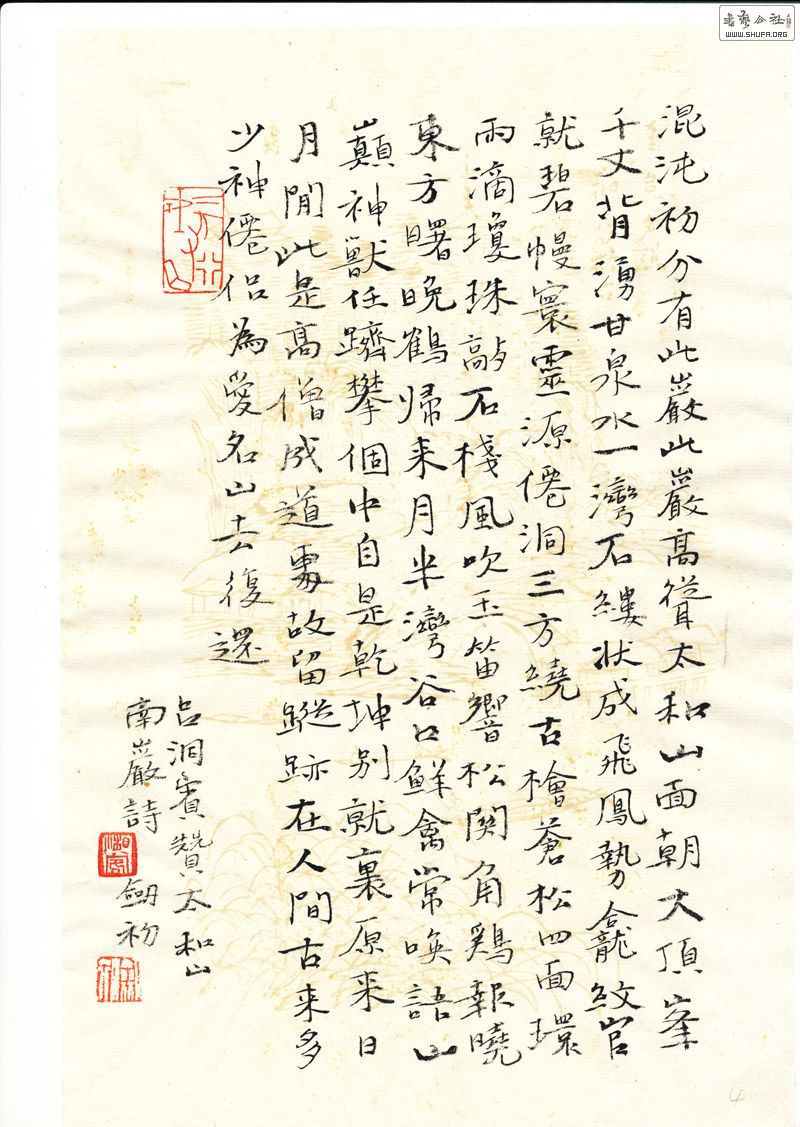 混沌初分有此巖此巖高聳太和山面朝大頂峯
千丈背湧甘泉水一灣石縷狀成飛鳳勢龕紋官
就碧幔寰靈源僊洞三方繞古檜蒼松四面環
雨滴瓊珠敲石棧風吹玉笛響松関角鷄報曉
東方曙晚鶴歸来月半灣谷口鮮禽常喚語山
巔神獸任躋攀個中自是乾坤别就裏原来日
月閒此是高僧成道處故留蹤跡在人間古来多
少神僊侣為愛名山去復還
吕洞賓贊太和山
南巖詩
劍初
書藝公社
WWW.SHUFA.ORG
4